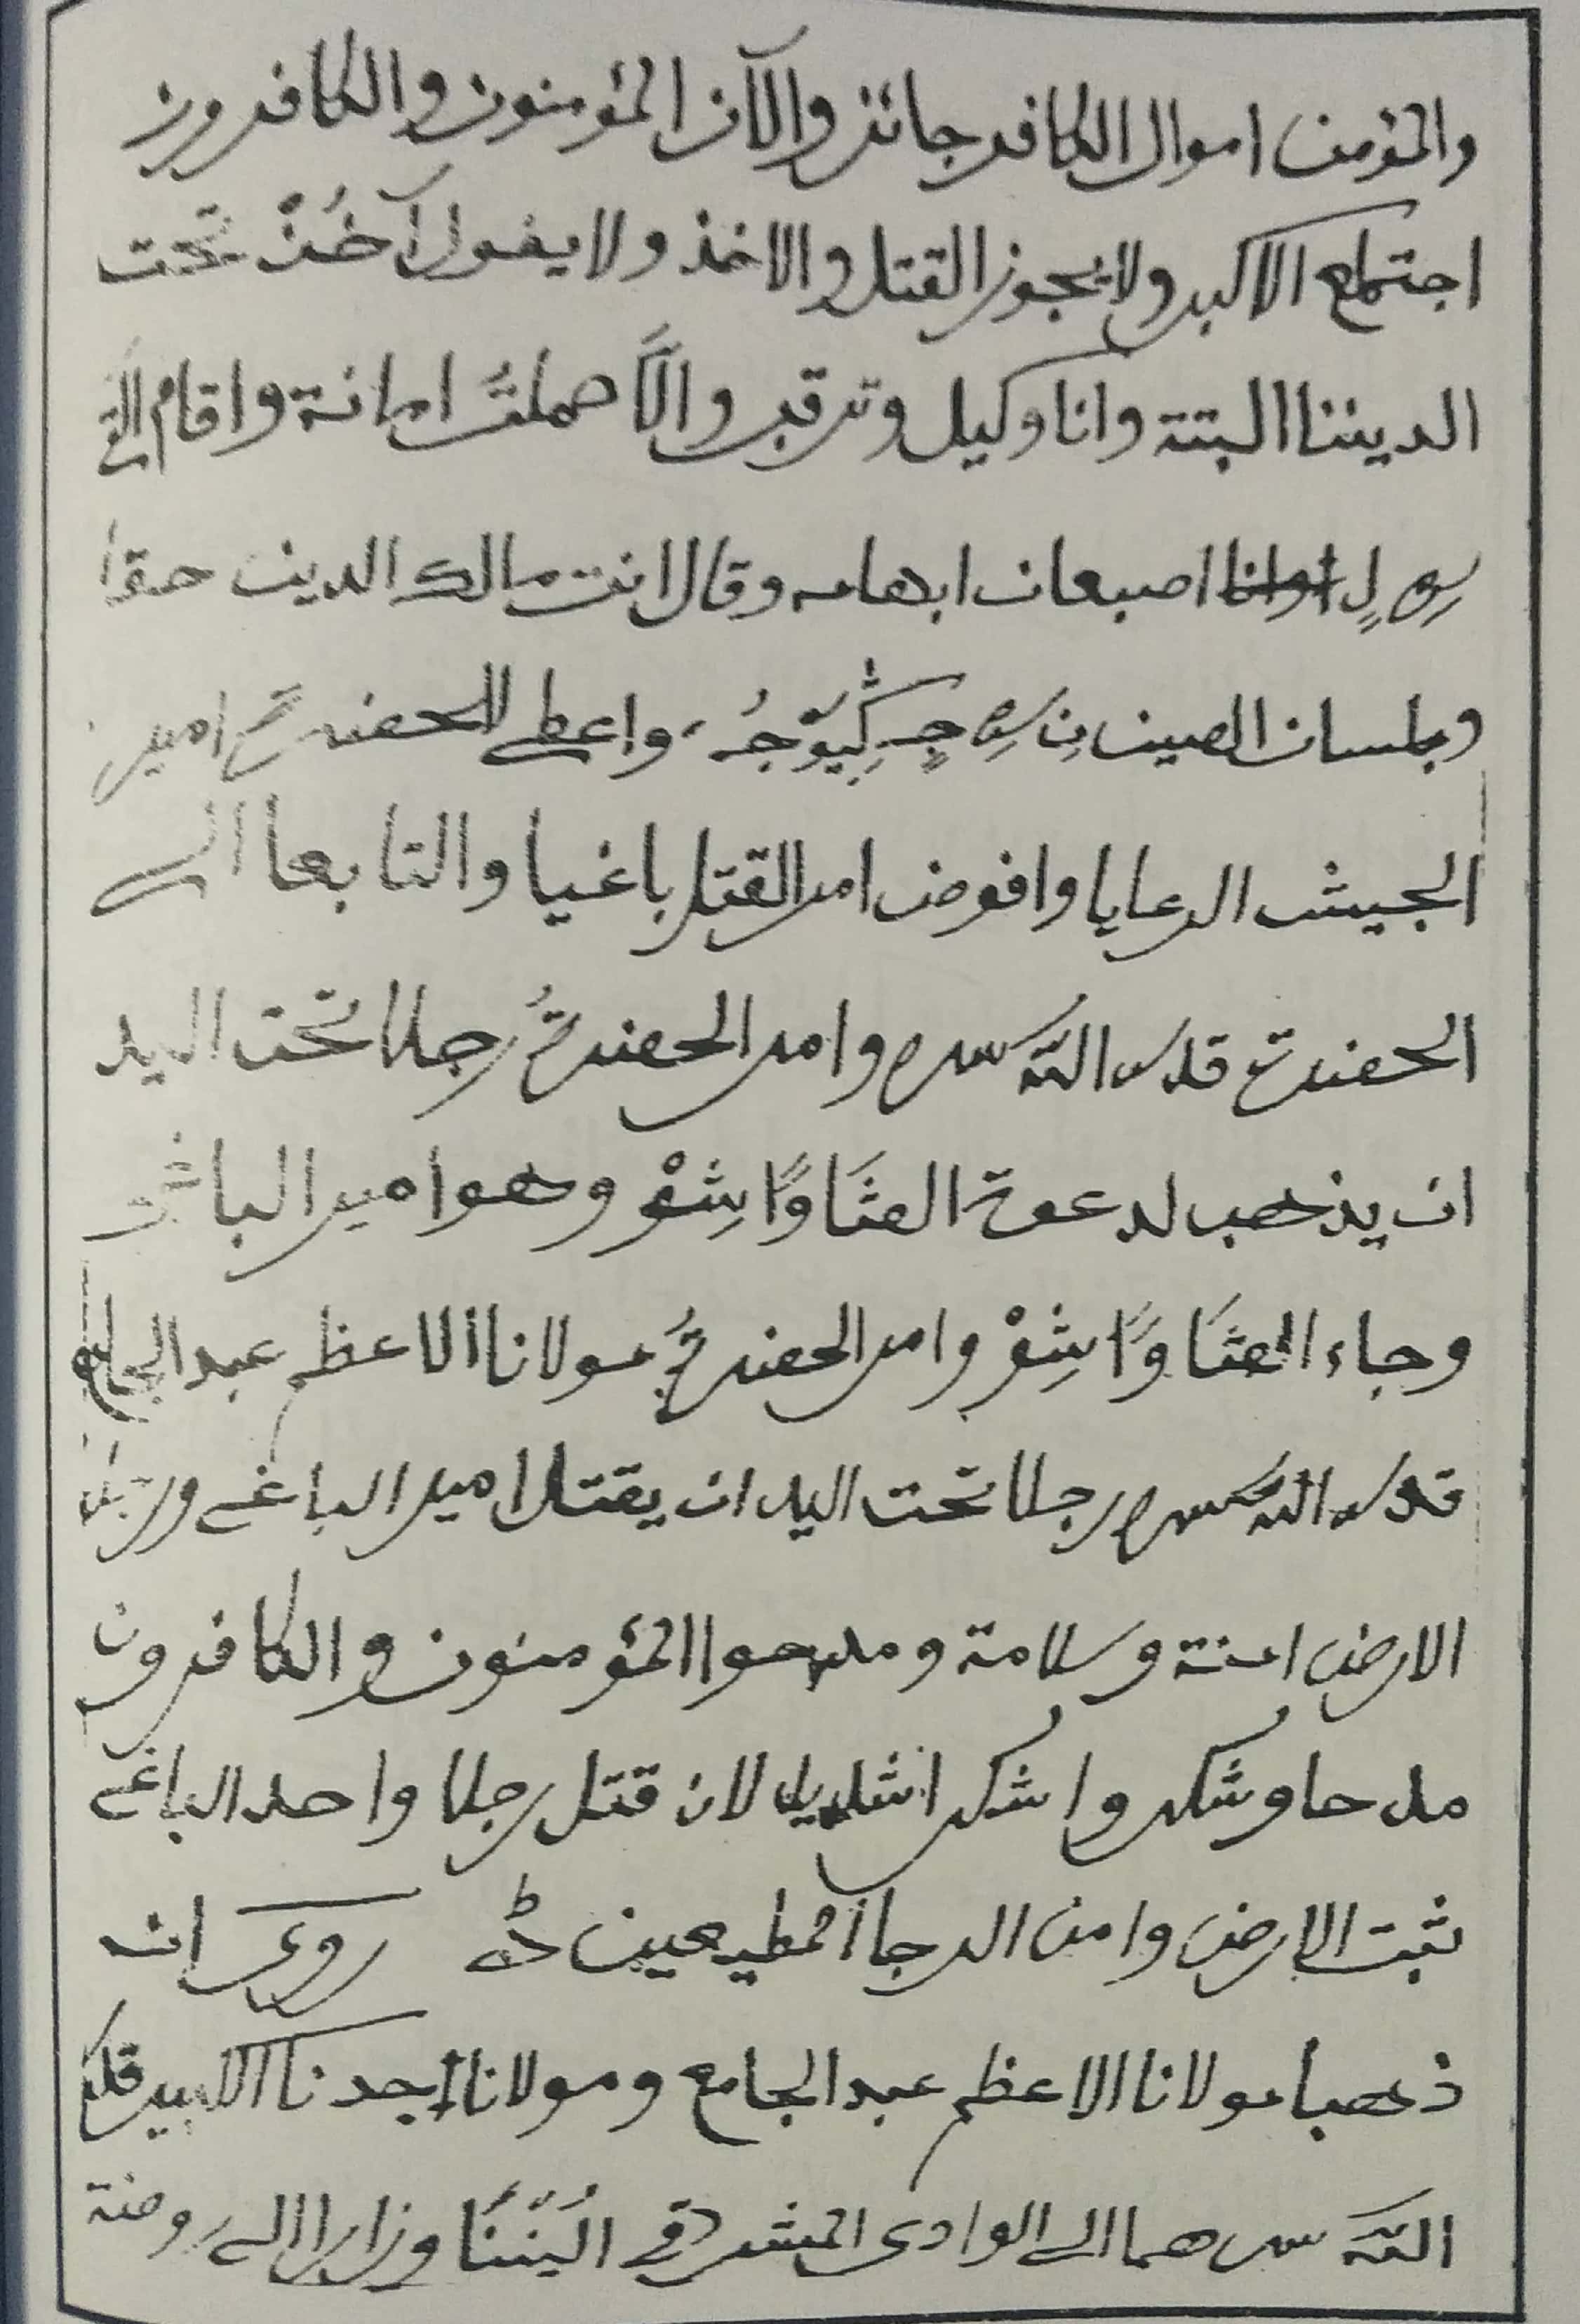 والمؤمن اموال الكافر جائز والآن المؤمنون والكافرون
اجتماع الاكبر ولا يجوز القتل والاخذ ولا يقول آخُذْ تحت
الديننا البتة وانا وكيل وترقبر والّا حملتُ امانة واقام
اصبعان ابهامه وقال انت مالك الدين حقا
وبلسان الصين واعطى الحضرة امير
الجيش الرعايا وافوض امر القتل باغيا والتابعا الى
الحضرة قدس الله سره وامر الحضرةُ رجلا تحت اليد
ان يذهب لدعوة الثَاوًا شِوْ وهو امير الباغى
وجاء الثَاوًا شِوْ وامر الحضرةُ مولانا الاعظم عبد الجامع
قدس الله سره رجلا تحت اليد ان يقتل امير الباغى
الارض امنة وسلامة ومدحوا المؤمنون والكافرون
مدحا وشكروا شكرا شديدا لان قتل رجلا واحد الباغى
يثبت الارض وامن الرجا المطيعين روى ان
ذهبا مولانا الاعظم عبد الجامع ومولانا جدنا الكبير قدس
الله سرهما الى الوادى المشرقى البُنَنَا وزارا الى روضة